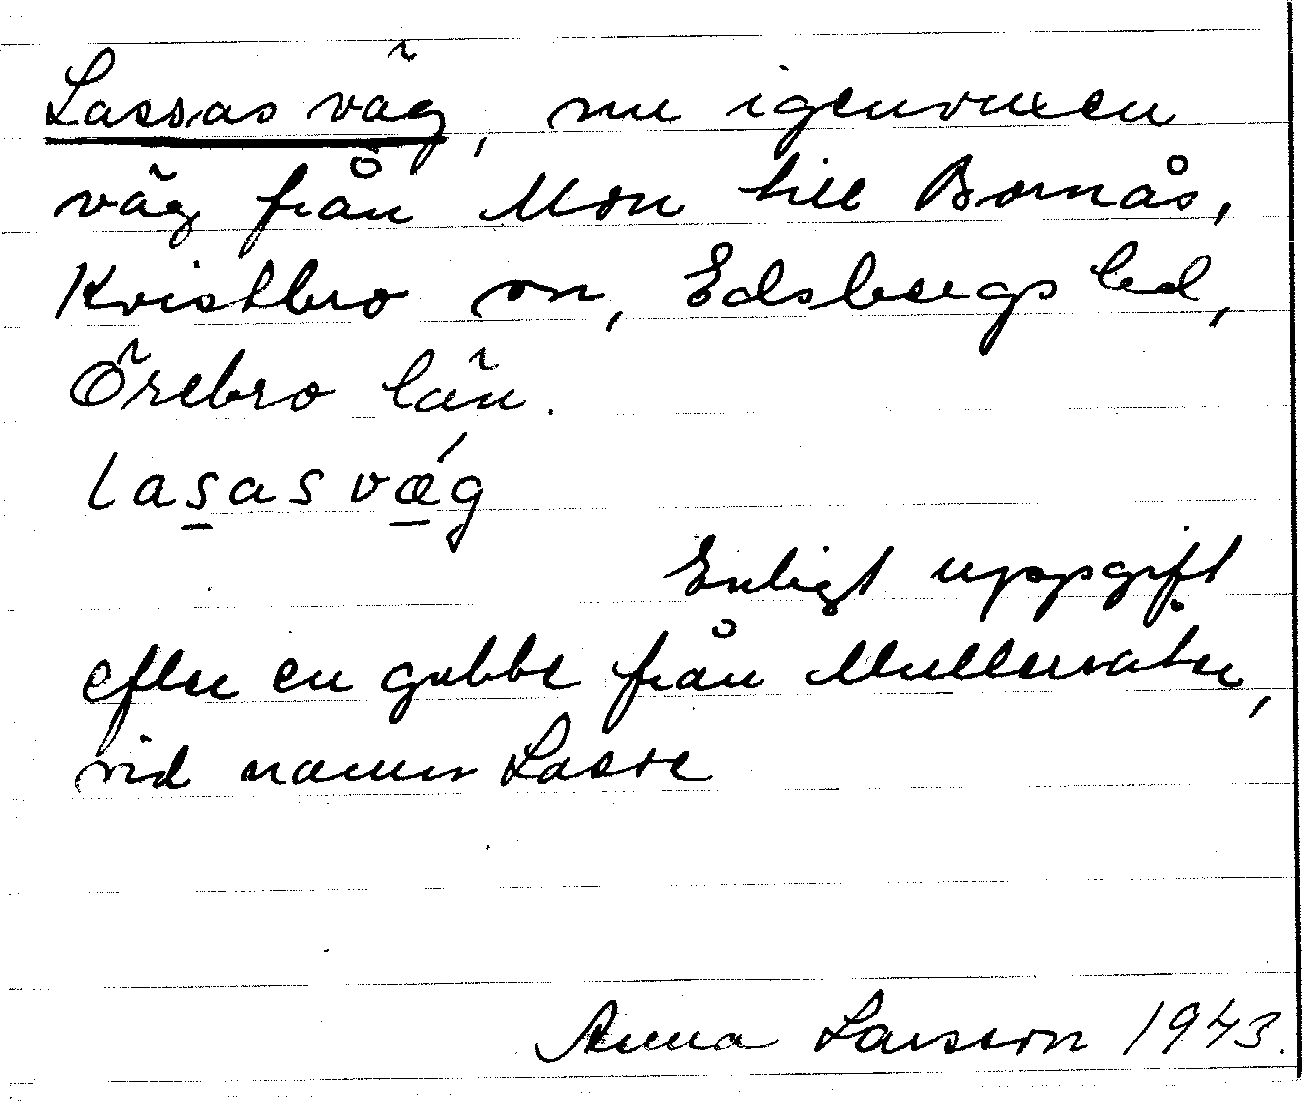 Lassas väg, nu igenvuxen
väg från Mon till Bornås,
Kvistbro sn, Edsbergs hd,
Örebro län.
lasasvǽg
Enligt uppgift
efter en gubbe från Mullersäter,
vid namn Lasse
Anna Larsson 1943.